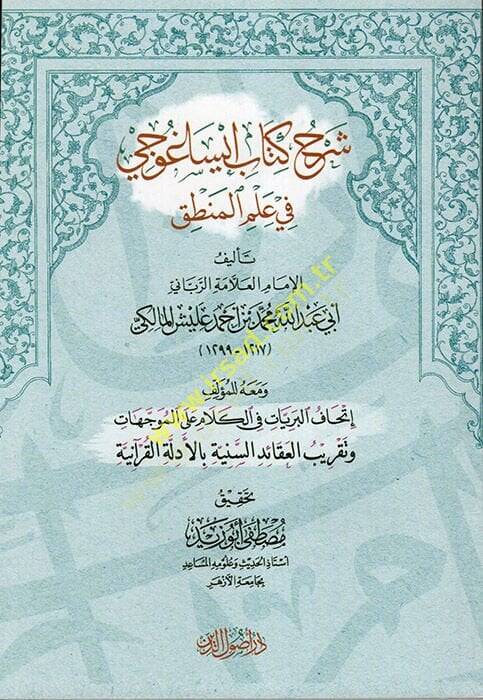 شرح كتاب إيساغوجي
في علم المنطق
تأليف
الإمام العلامة الرباني
أبي عبد الله محمد بن أحمد عليش المالكي
(١٢١٧ - ١٢٩٩)
ومعه للمؤلف
إتحاف البريات في الكلام على الموجهات
وتقريب العقائد السنية بالأدلة القرآنية
تحقيق
مصطفى أبو زيد
أستاذ الحديث وعلومه المساعد
بجامعة الأزهر
دار أصول الدين